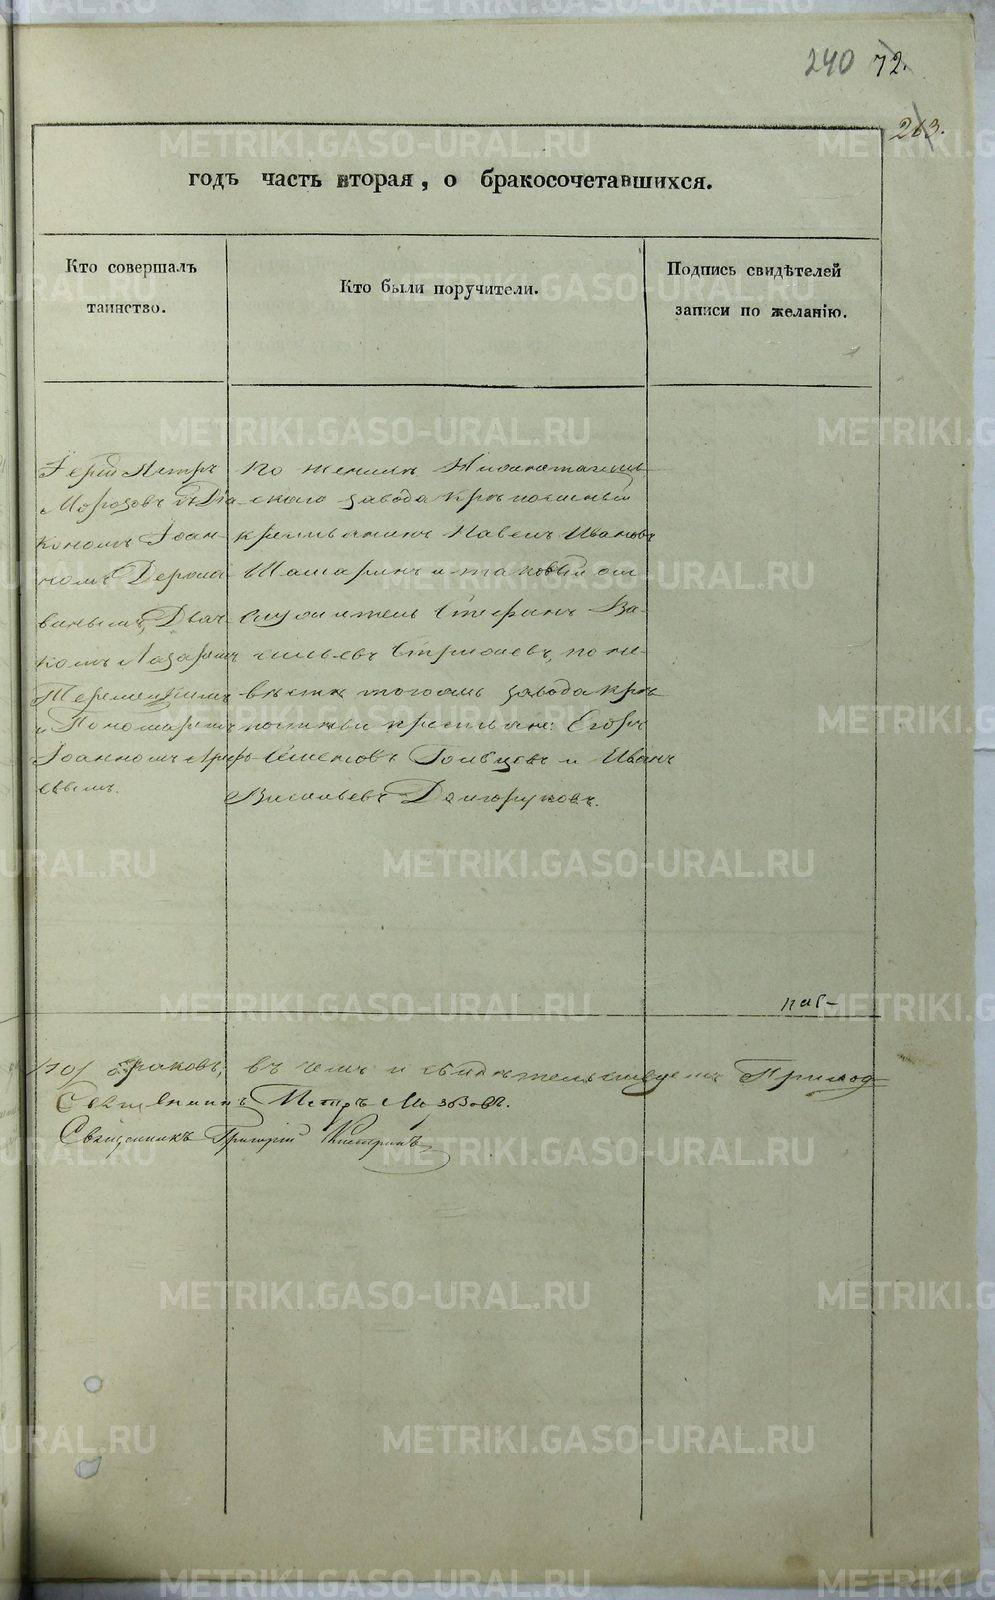 240 72.
263.
годъ часть вторая, о бракосочетавшихся.
Кто совершалъ
таинство.
Кто были поручители.
Подпись свидѣтелей
записи по желанію.
Іерей Петръ
Морозовъ съ Діа-
кономъ Іоан-
номъ
Дьяч-
комъ Лазаремъ
и Пономаремъ
Іоанномъ
евымъ.
по женихѣ Нижнетагиль-
скаго завода крѣпостный
крестьянинъ Павелъ Ивановъ
Шамаринъ и таковый
служитель Стефанъ Ва-
сильевъ по не-
вѣстѣ тогожъ завода крѣ-
постные крестьяне: Егоръ
Семеновъ и Иванъ
Васильевъ Долгоруковъ.
/70/ браковъ, въ чемъ и свидѣтельствуемъ Приход-
Священникъ Петръ Морозовъ.
Священникъ Григорій
METRIKI.GASO-URAL.RU